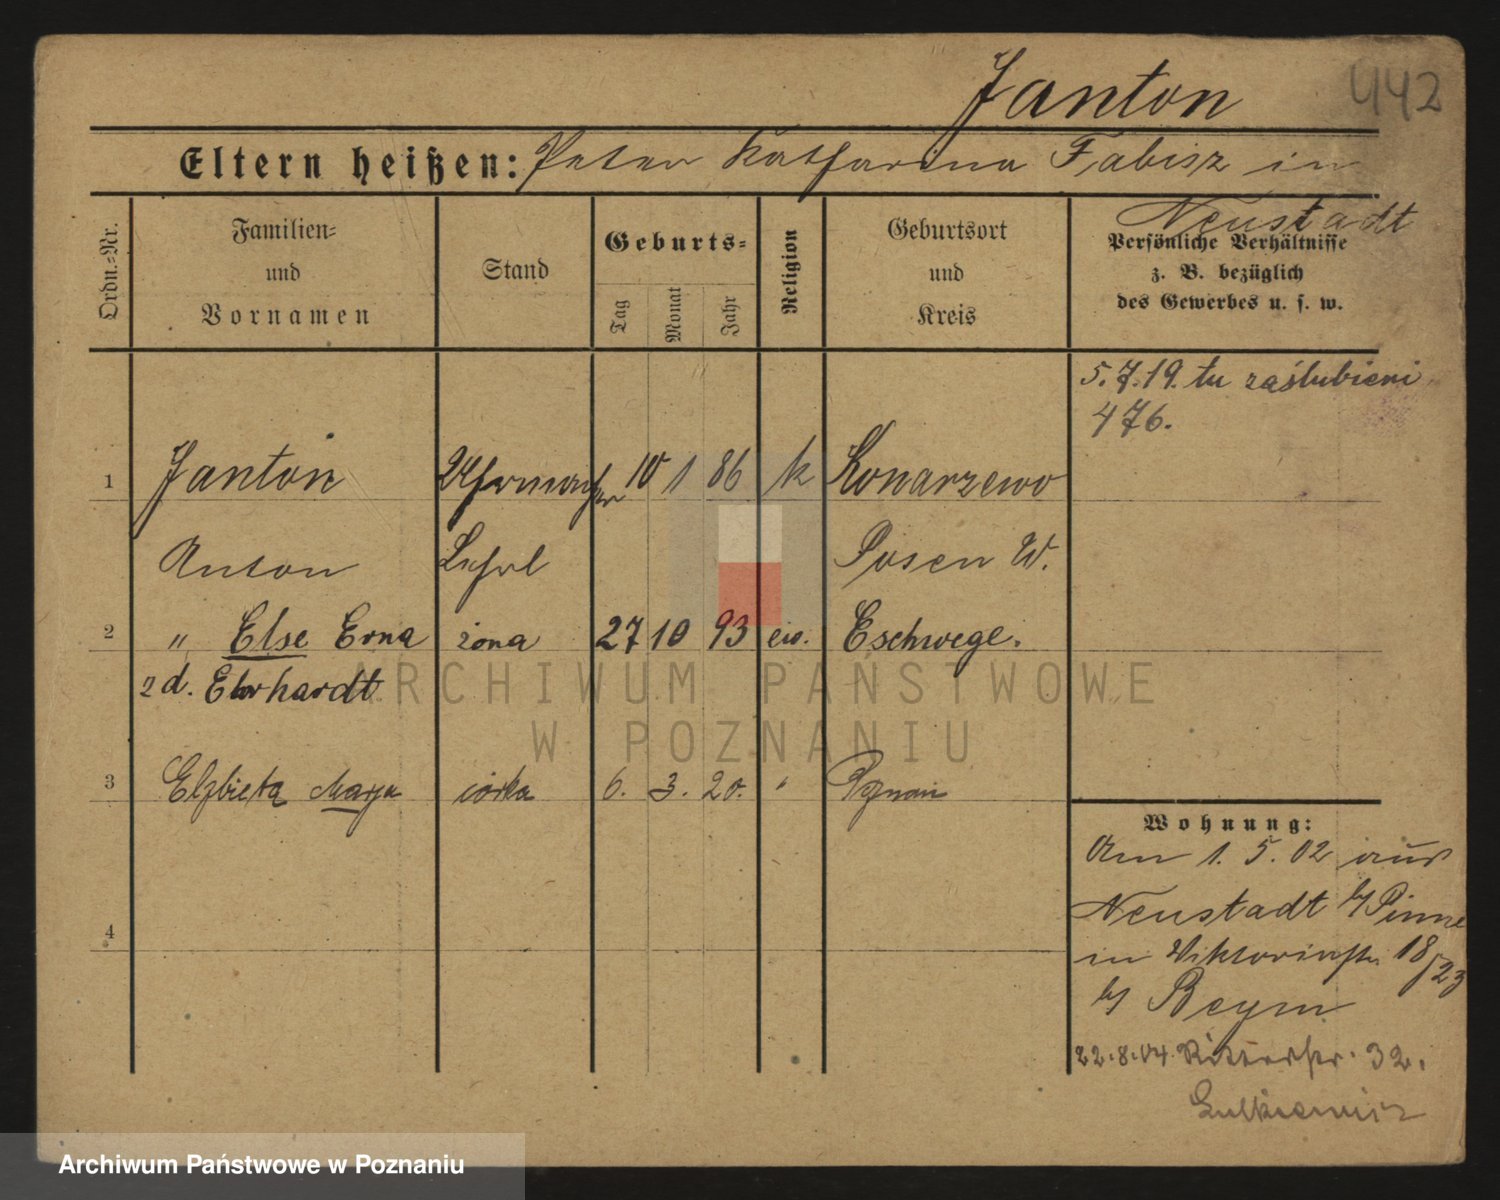 Janton
442
Eltern heißen: Peter Katharina Fabisz in
Neustadt
Ordn.-Nr.
Familien-
und
Vornamen
Stand
Geburts-
Tag
Monat
Jahr
Religion
Geburtsort
und
Kreis
Persönliche Verhältnisse
z. B. bezüglich
des Gewerbes u. s. w.
5.7.19. tu zaślubieni
476.
1 Janton Uhrmacher 10 1 86 k Konarzewo
Anton Lehrl Posen W.
2 " Else Erna żona 27 10 93 ew. Eschwege.
zd. Eberhardt
3 Elzbieta Marja córka 6. 3. 20. " Poznań
4
Wohnung:
Am 1. 5. 02 aus
Neustadt b/Pinne
in Viktoriastr. 18/23
b/ Beym
22.8.04. Ritterstr. 32.
ARCHIWUM PAŃSTWOWE
W POZNANIU
Archiwum Państwowe w Poznaniu